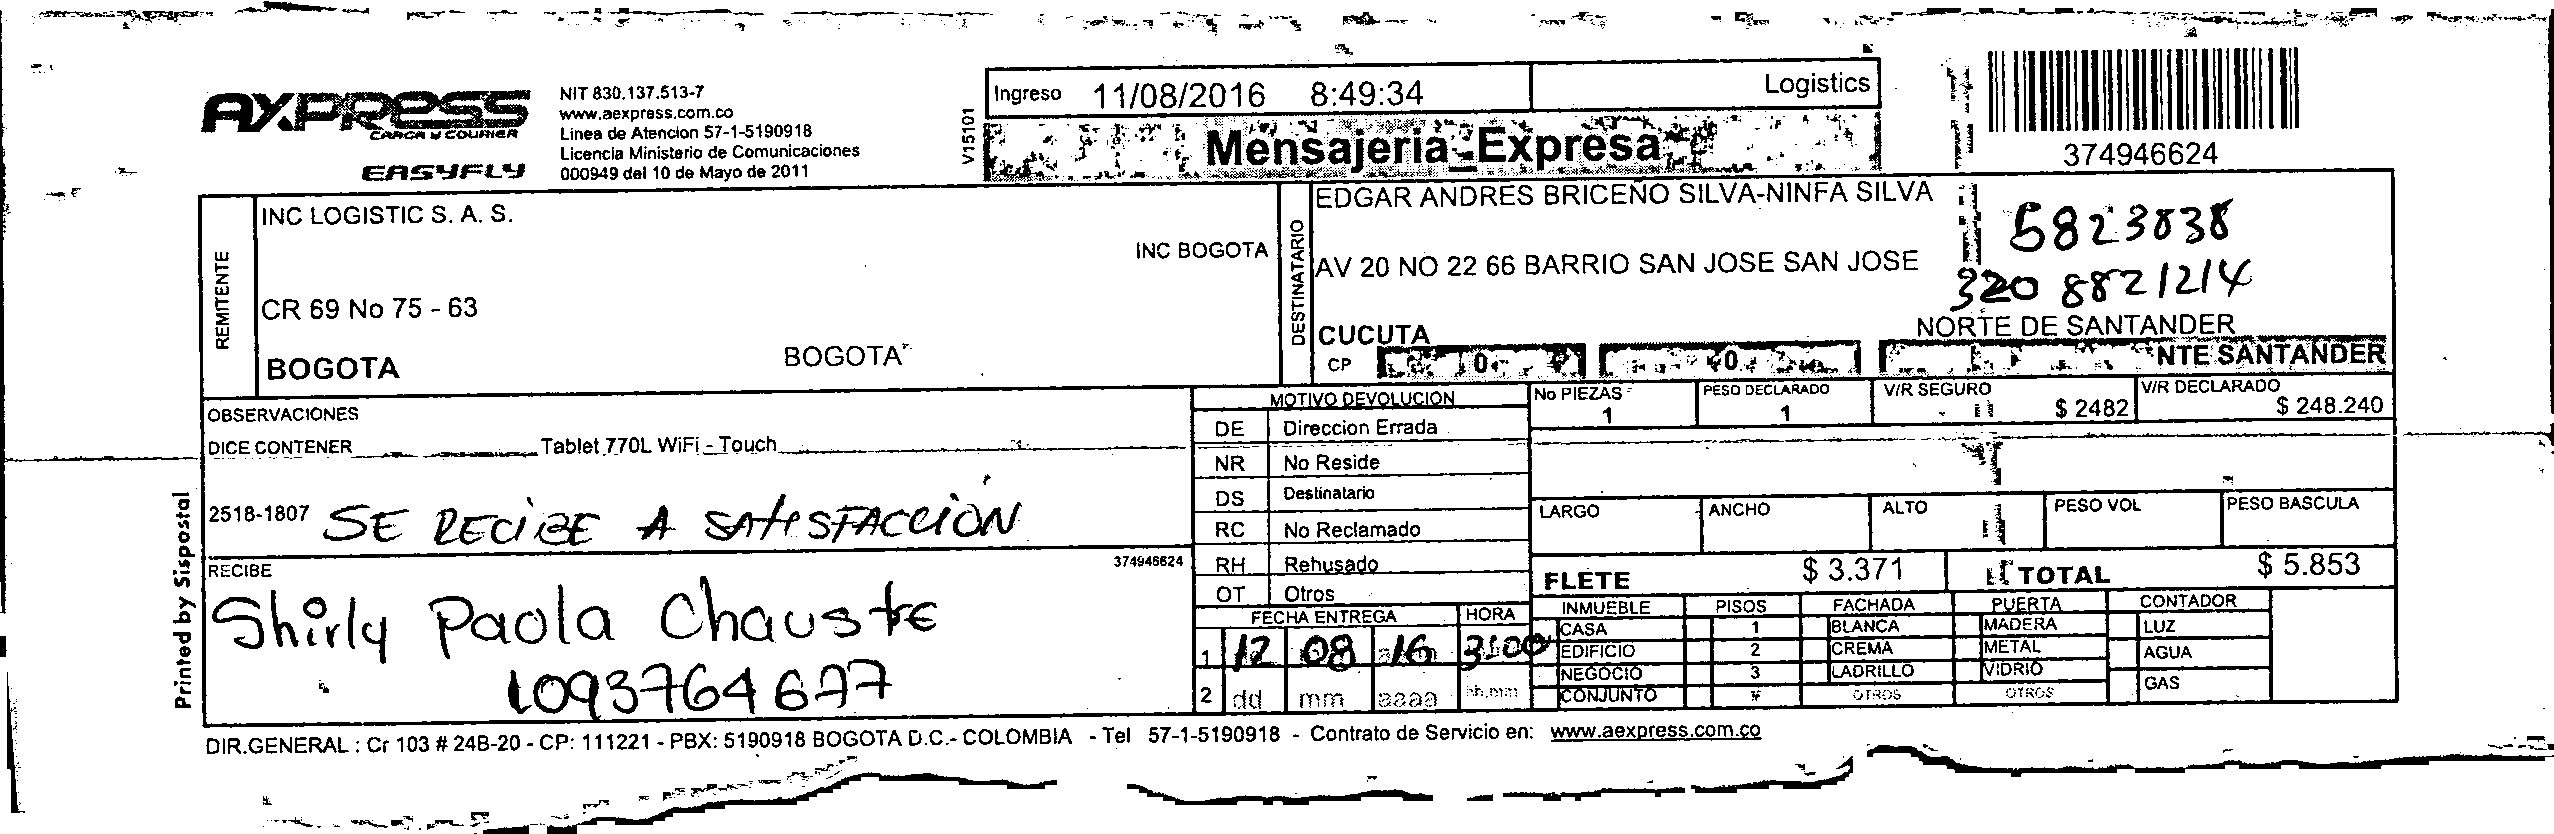 AXPRESS
CARGA y COURIER
EASYFLY
NIT 830.137.513-7
www.aexpress.com.co
Linea de Atencion 57-1-5190918
Licencia Ministerio de Comunicaciones
000949 del 10 de Mayo de 2011
V15101
Ingreso 11/08/2016 8:49:34 Logistics
Mensajeria Expresa
374946624
REMITENTE
INC LOGISTIC S. A. S.
INC BOGOTA
CR 69 No 75 - 63
BOGOTA BOGOTA
DESTINATARIO
EDGAR ANDRES BRICEÑO SILVA-NINFA SILVA
5823838
AV 20 NO 22 66 BARRIO SAN JOSE SAN JOSE
320 8821214
CUCUTA NORTE DE SANTANDER
CP 0 0 NTE SANTANDER
OBSERVACIONES
DICE CONTENER Tablet 770L WiFi - Touch
2518-1807 SE RECIBE A SATISFACCION
RECIBE 374946624
Shirly Paola Chauste
1093764677
MOTIVO DEVOLUCION
DE Direccion Errada
NR No Reside
DS Destinatario
RC No Reclamado
RH Rehusado
OT Otros
FECHA ENTREGA HORA
1 12 08 16 3:00
2 dd mm aaaa hh:mm
No PIEZAS PESO DECLARADO V/R SEGURO V/R DECLARADO
1 1 $ 2482 $ 248.240
LARGO ANCHO ALTO PESO VOL PESO BASCULA
FLETE $ 3.371 TOTAL $ 5.853
INMUEBLE PISOS FACHADA PUERTA CONTADOR
CASA 1 BLANCA MADERA LUZ
EDIFICIO 2 CREMA METAL AGUA
NEGOCIO 3 LADRILLO VIDRIO GAS
CONJUNTO # OTROS OTROS
Printed by Sispostal
DIR.GENERAL : Cr 103 # 24B-20 - CP: 111221 - PBX: 5190918 BOGOTA D.C.- COLOMBIA - Tel 57-1-5190918 - Contrato de Servicio en: www.aexpress.com.co